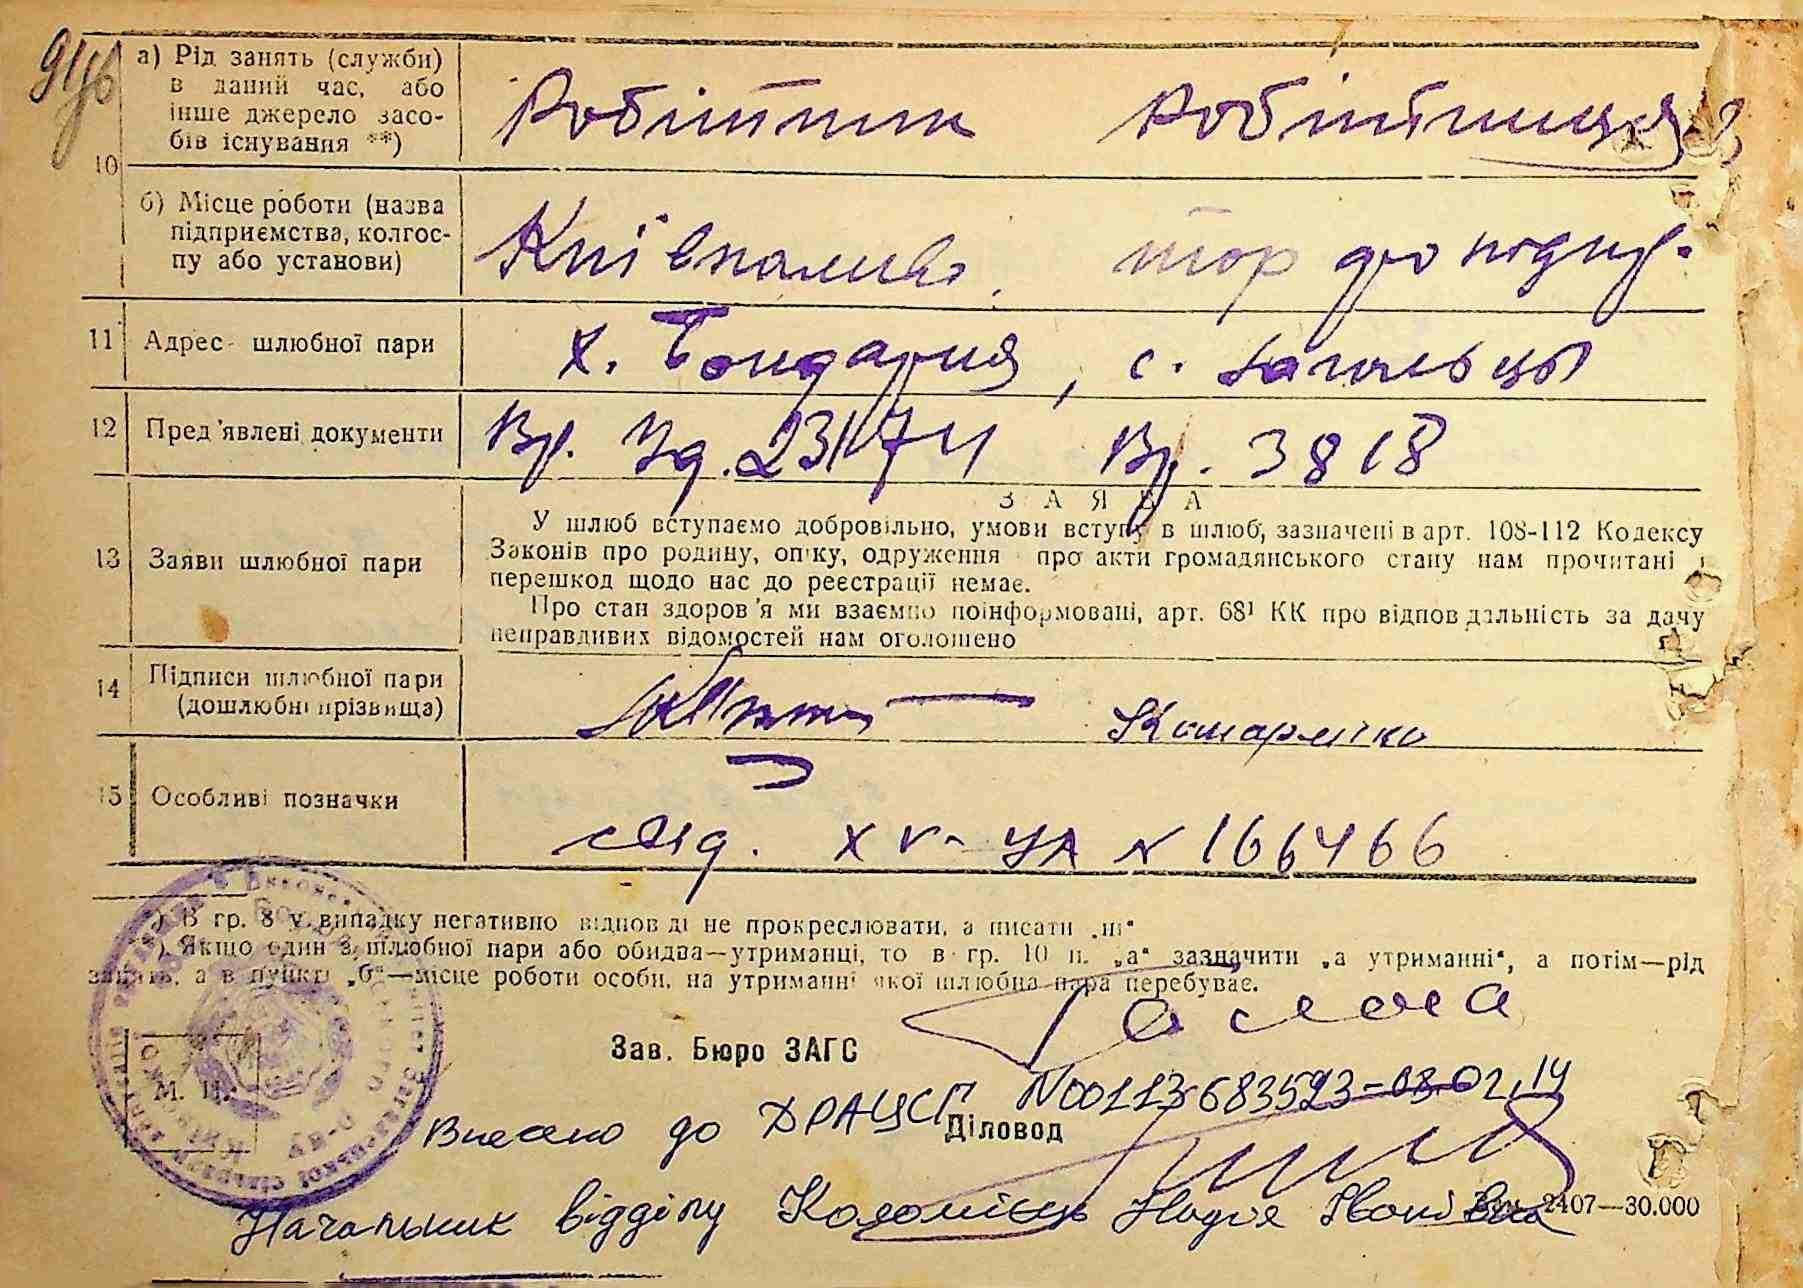 а) Рід занять (служби)
в даний час, або
інше джерело засо-
бів існування **)
Робітник Робітниця
10
б) Місце роботи (назва
підприємства, колгос-
пу або установи)
Київпаливо,
11 Адрес шлюбної пари
х. Бондарня, с.
12 Пред'явлені документи
Вр. Уд. 23174 Вр. 3818
ЗАЯВА
13 Заяви шлюбної пари
У шлюб вступаємо добровільно, умови вступу в шлюб, зазначені в арт. 108-112 Кодексу
Законів про родину, опіку, одруження про акти громадянського стану нам прочитані і
перешкод щодо нас до реєстрації немає.
Про стан здоров'я ми взаємно поінформовані, арт. 68¹ КК про відповідальність за дачу
неправдивих відомостей нам оголошено
14 Підписи шлюбної пари
(дошлюбні прізвища)
15 Особливі позначки
свід. XV-УА N 166466
*) В гр. 8 у випадку негативно відповіді не прокреслювати, а писати „ні“
**) Якщо один з шлюбної пари або обидва—утриманці, то в гр. 10 п. „а“ зазначити „а утриманні“, а потім—рід
занять, а в пункті „б“—місце роботи особи, на утриманні якої шлюбна пара перебуває.
Зав. Бюро ЗАГС
М. П.
Внесено до ДРАЦСГ N00113683523-08.02.14
Діловод
Начальник відділу Коломієць Надія Іванівна
2407—30.000